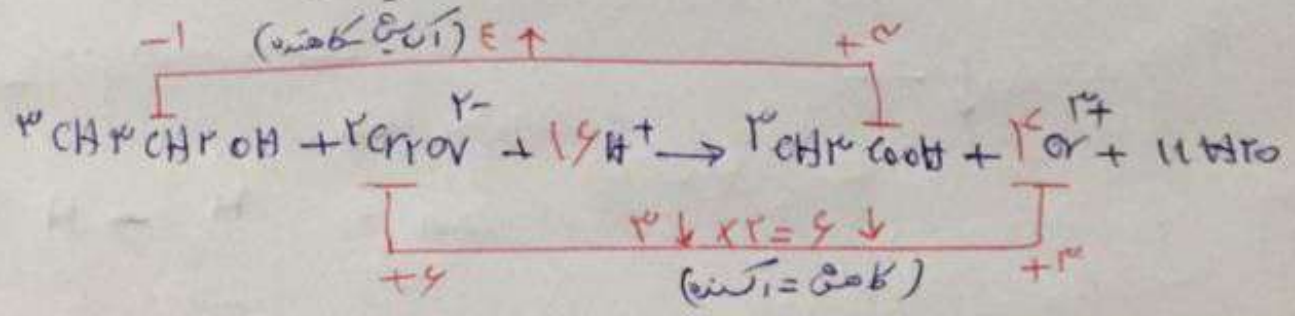 -۱ (اکسایش = کاهنده) ۴ ↑ +۳
۳CH۳CH۲OH + ۲Cr۲O۷۲- + ۱۶H+ → ۳CH۳COOH + ۴Cr۳+ + ۱۱H۲O
۳ ↓ ×۲ = ۶ ↓
+۶ (کاهش = اکسنده) +۳